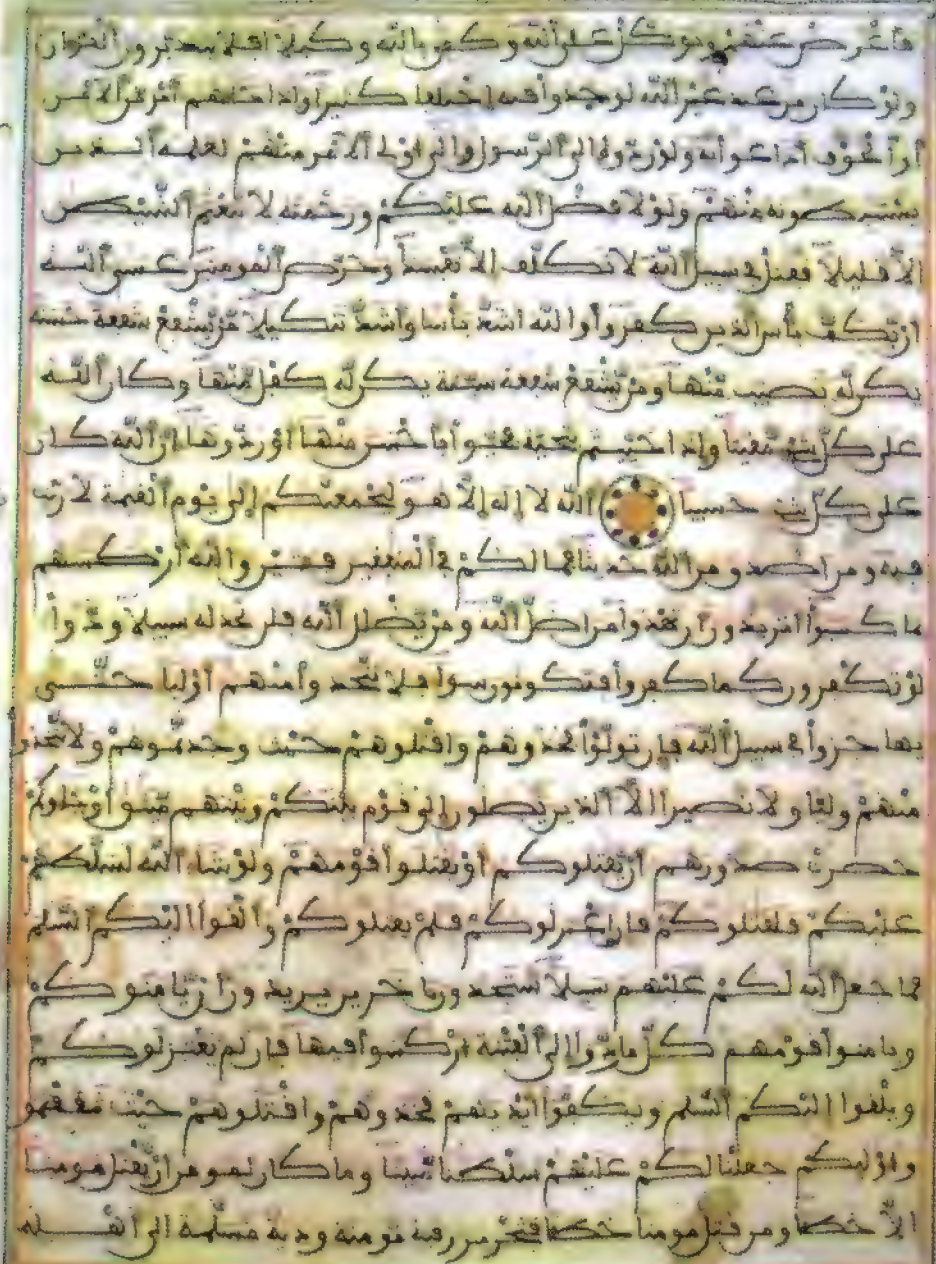 فأعرض عنهم وتوكل على ٱلله وكفى بالله وكيلا افلا يتدبرون ٱلقرءان
ولوْ كان من عند غير ٱلله لوجدوا فيه اختلفا كثيرا وإذا جاءهم أمر من ٱلامن
أو ٱلخوف أذاعوا به ولو ردوه إلى ٱلرسول وإلى أولى ٱلامر منهم لعلمه ٱلذين
يستنبطونه منهم ولولا فضل ٱلله عليكم ورحمته لاتبعتم ٱلشيطن
إلا قليلا فقتل في سبيل ٱلله لا تكلف إلا نفسك وحرض ٱلمومنين عسى ٱلله
أن يكف بأس ٱلذين كفروا وٱلله أشد بأسا وأشد تنكيلا من يشفع شفعة حسنة
يكن له نصيب منها ومن يشفع شفعة سيئة يكن له كفل منها وكان ٱلله
على كل شيء مقيتا وإذا حييتم بتحية فحيوا بأحسن منها أو ردوها إن ٱلله كان
على كل شيء حسيبا ٱلله لا إله إلا هو ليجمعنكم إلى يوم ٱلقيمة لا ريب
فيه ومن اصدق من ٱلله حديثا فما لكم في ٱلمنفقين فئتين وٱلله أركسهم
بما كسبوا أتريدون أن تهدوا من اضل ٱلله ومن يضلل ٱلله فلن تجد له سبيلا ودوا
لو تكفرون كما كفروا فتكونون سواء فلا تتخذوا منهم أولياء حتى
يهاجروا في سبيل ٱلله فإن تولوا فخذوهم واقتلوهم حيث وجدتموهم ولا تتخذوا
منهم وليا ولا نصيرا الا ٱلذين يصلون إلى قوم بينكم وبينهم ميثق أو جاءوكم
حصرت صدورهم أن يقتلوكم أو يقتلوا قومهم ولو شاء ٱلله لسلطهم
عليكم فلقتلوكم فإن اعتزلوكم فلم يقتلوكم وألقوا اليكم ٱلسلم
فما جعل ٱلله لكم عليهم سبيلا ستجدون ءاخرين يريدون أن يامنوكم
ويامنوا قومهم كل ما ردوا إلى ٱلفتنة أركسوا فيها فإن لم يعتزلوكم
ويلقوا إليكم ٱلسلم ويكفوا أيديهم فخذوهم واقتلوهم حيث ثقفتموهم
وأوليكم جعلنا لكم عليهم سلطنا مبينا وما كان لمومن ان يقتل مومنا
الا خطا ومن قتل مومنا خطا فتحرير رقبة مومنة ودية مسلمة الى أهله